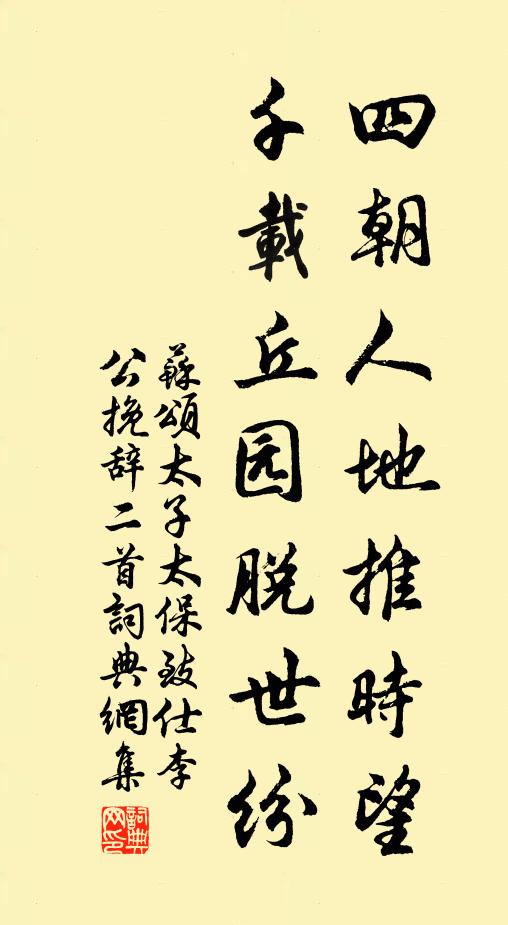 四朝人地推時望
千載丘园脱世纷
蘇頌太子太保致仕李
公挽辞二首詞典網集
詞典
网印